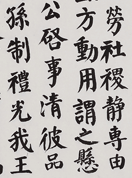 勞社稷静専由
方動用謂之懸
公啓事清彼品
孫制禮光我王